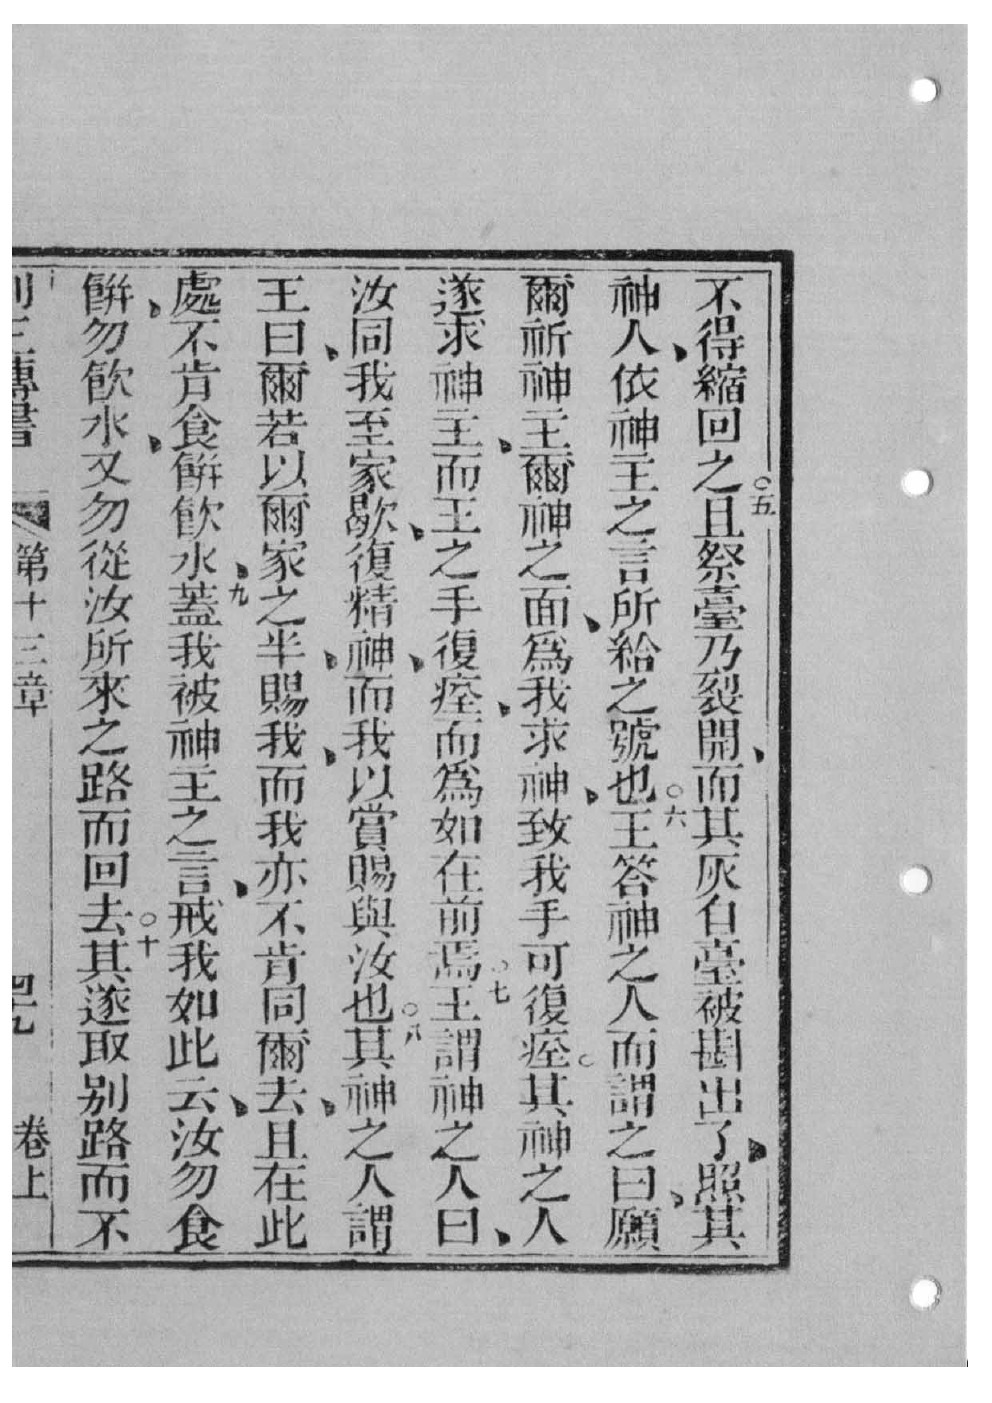 不、得縮回之○五且祭臺乃裂開、而其灰自臺被斟出了、照其
神人、依神主之言所給之號也○六王答神之人而謂之曰、願
爾祈神主、爾神之面、爲我求神、致我手可復痊。其神之人
遂求神主、而王之手復痊、而爲如在前焉○七王謂神之人曰、
汝同我至家歇、復精神、而我以賞賜與汝也○八其神之人謂
王曰、爾若以爾家之半、賜我、而我亦不肯同爾去、且在此
處不肯食餅飲水、九蓋我被神主之言、戒我如此云、汝勿食
餅、勿飲水、又勿從汝所來之路而回去○十其遂取别路而不
列王傳書 第十三章 卷上